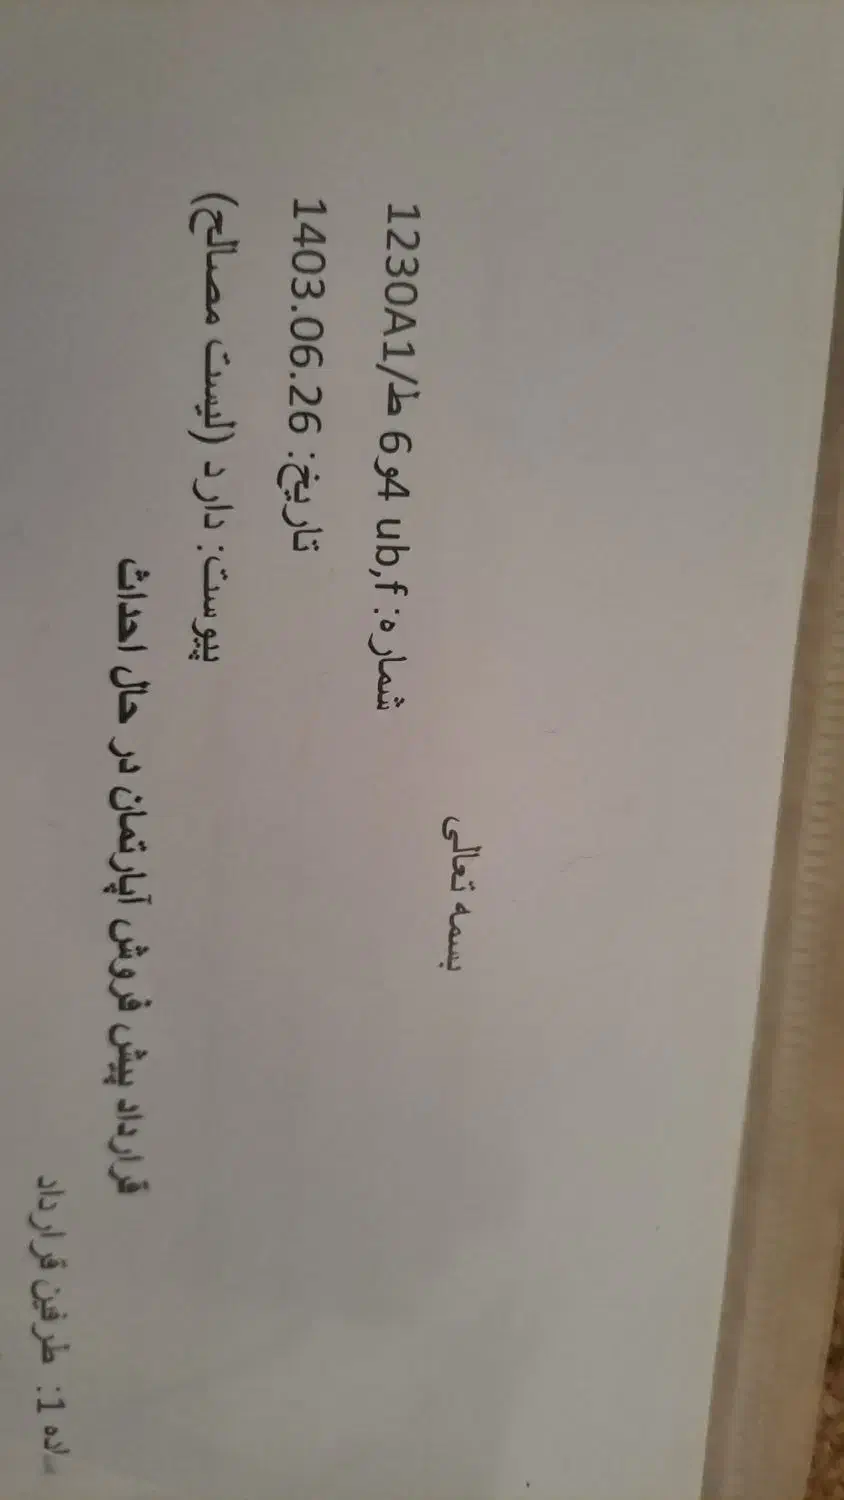 بسمه تعالی
شماره: ub,f 4و6 ط/1230A1
تاریخ: 1403.06.26
پیوست: دارد (لیست مصالح)
قرارداد پیش فروش آپارتمان در حال احداث
ماده 1: طرفین قرارداد